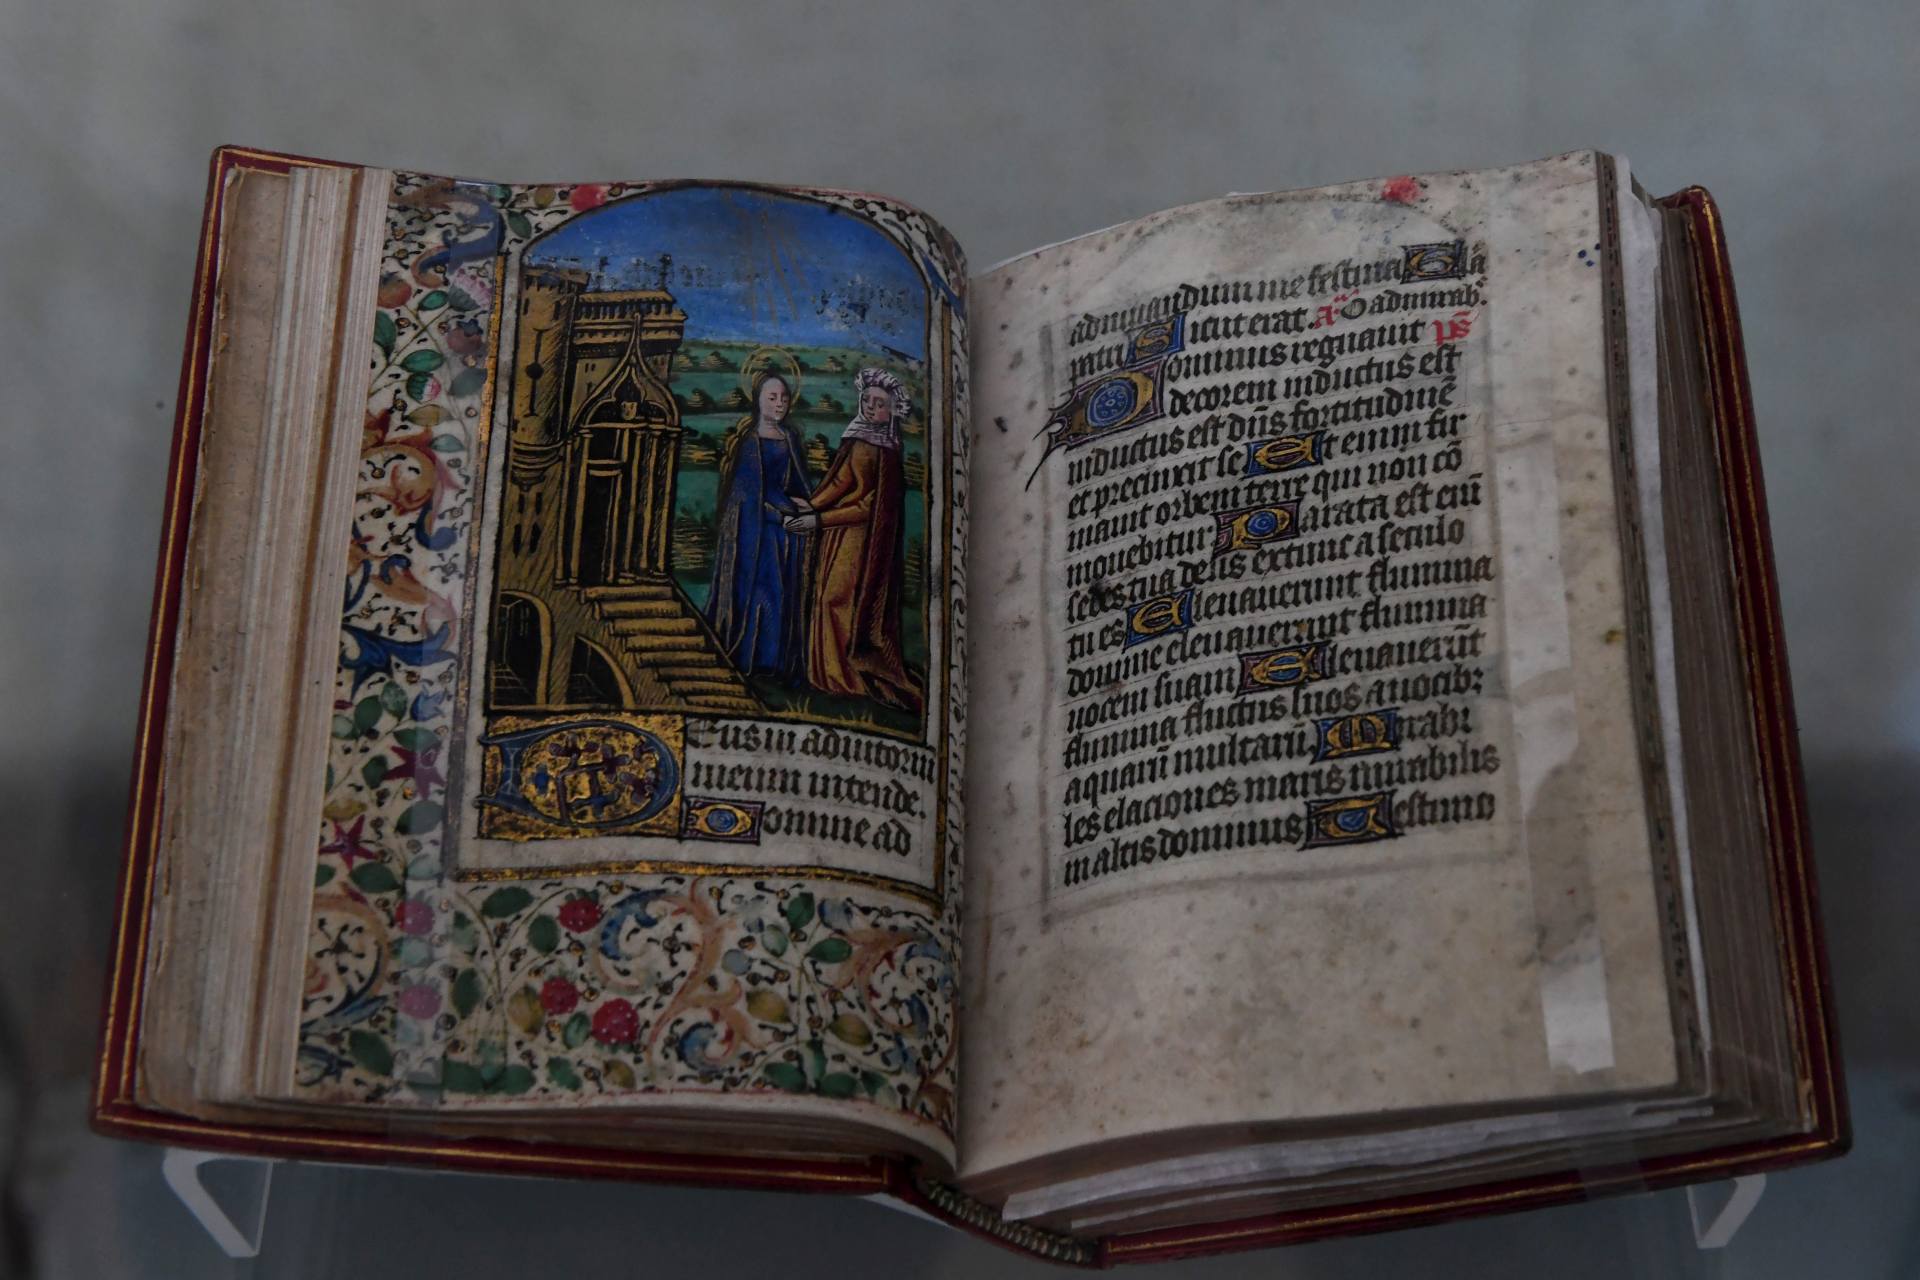 Deus in adiutoriū
meum intende.
Domine ad
adiuuandum me festina Gla
patri Sicut erat. a͞ O admirab'.
Dominus regnauit ps̄
decorem indutus est
indutus est dn̄s fortitudinē
et precinxit se Et enim fir
mauit orbem terre qui non cō
mouebitur. Parata est enī
sedes tua deus ex tunc a seculo
tu es Eleuauerunt flumina
domine eleuauerunt flumina
uocem suam Eleuauerūt
flumina fluctus suos a uocibꝫ
aquarū multarū, Mirabi
les elaciones maris mirabilis
in altis dominus Testimo